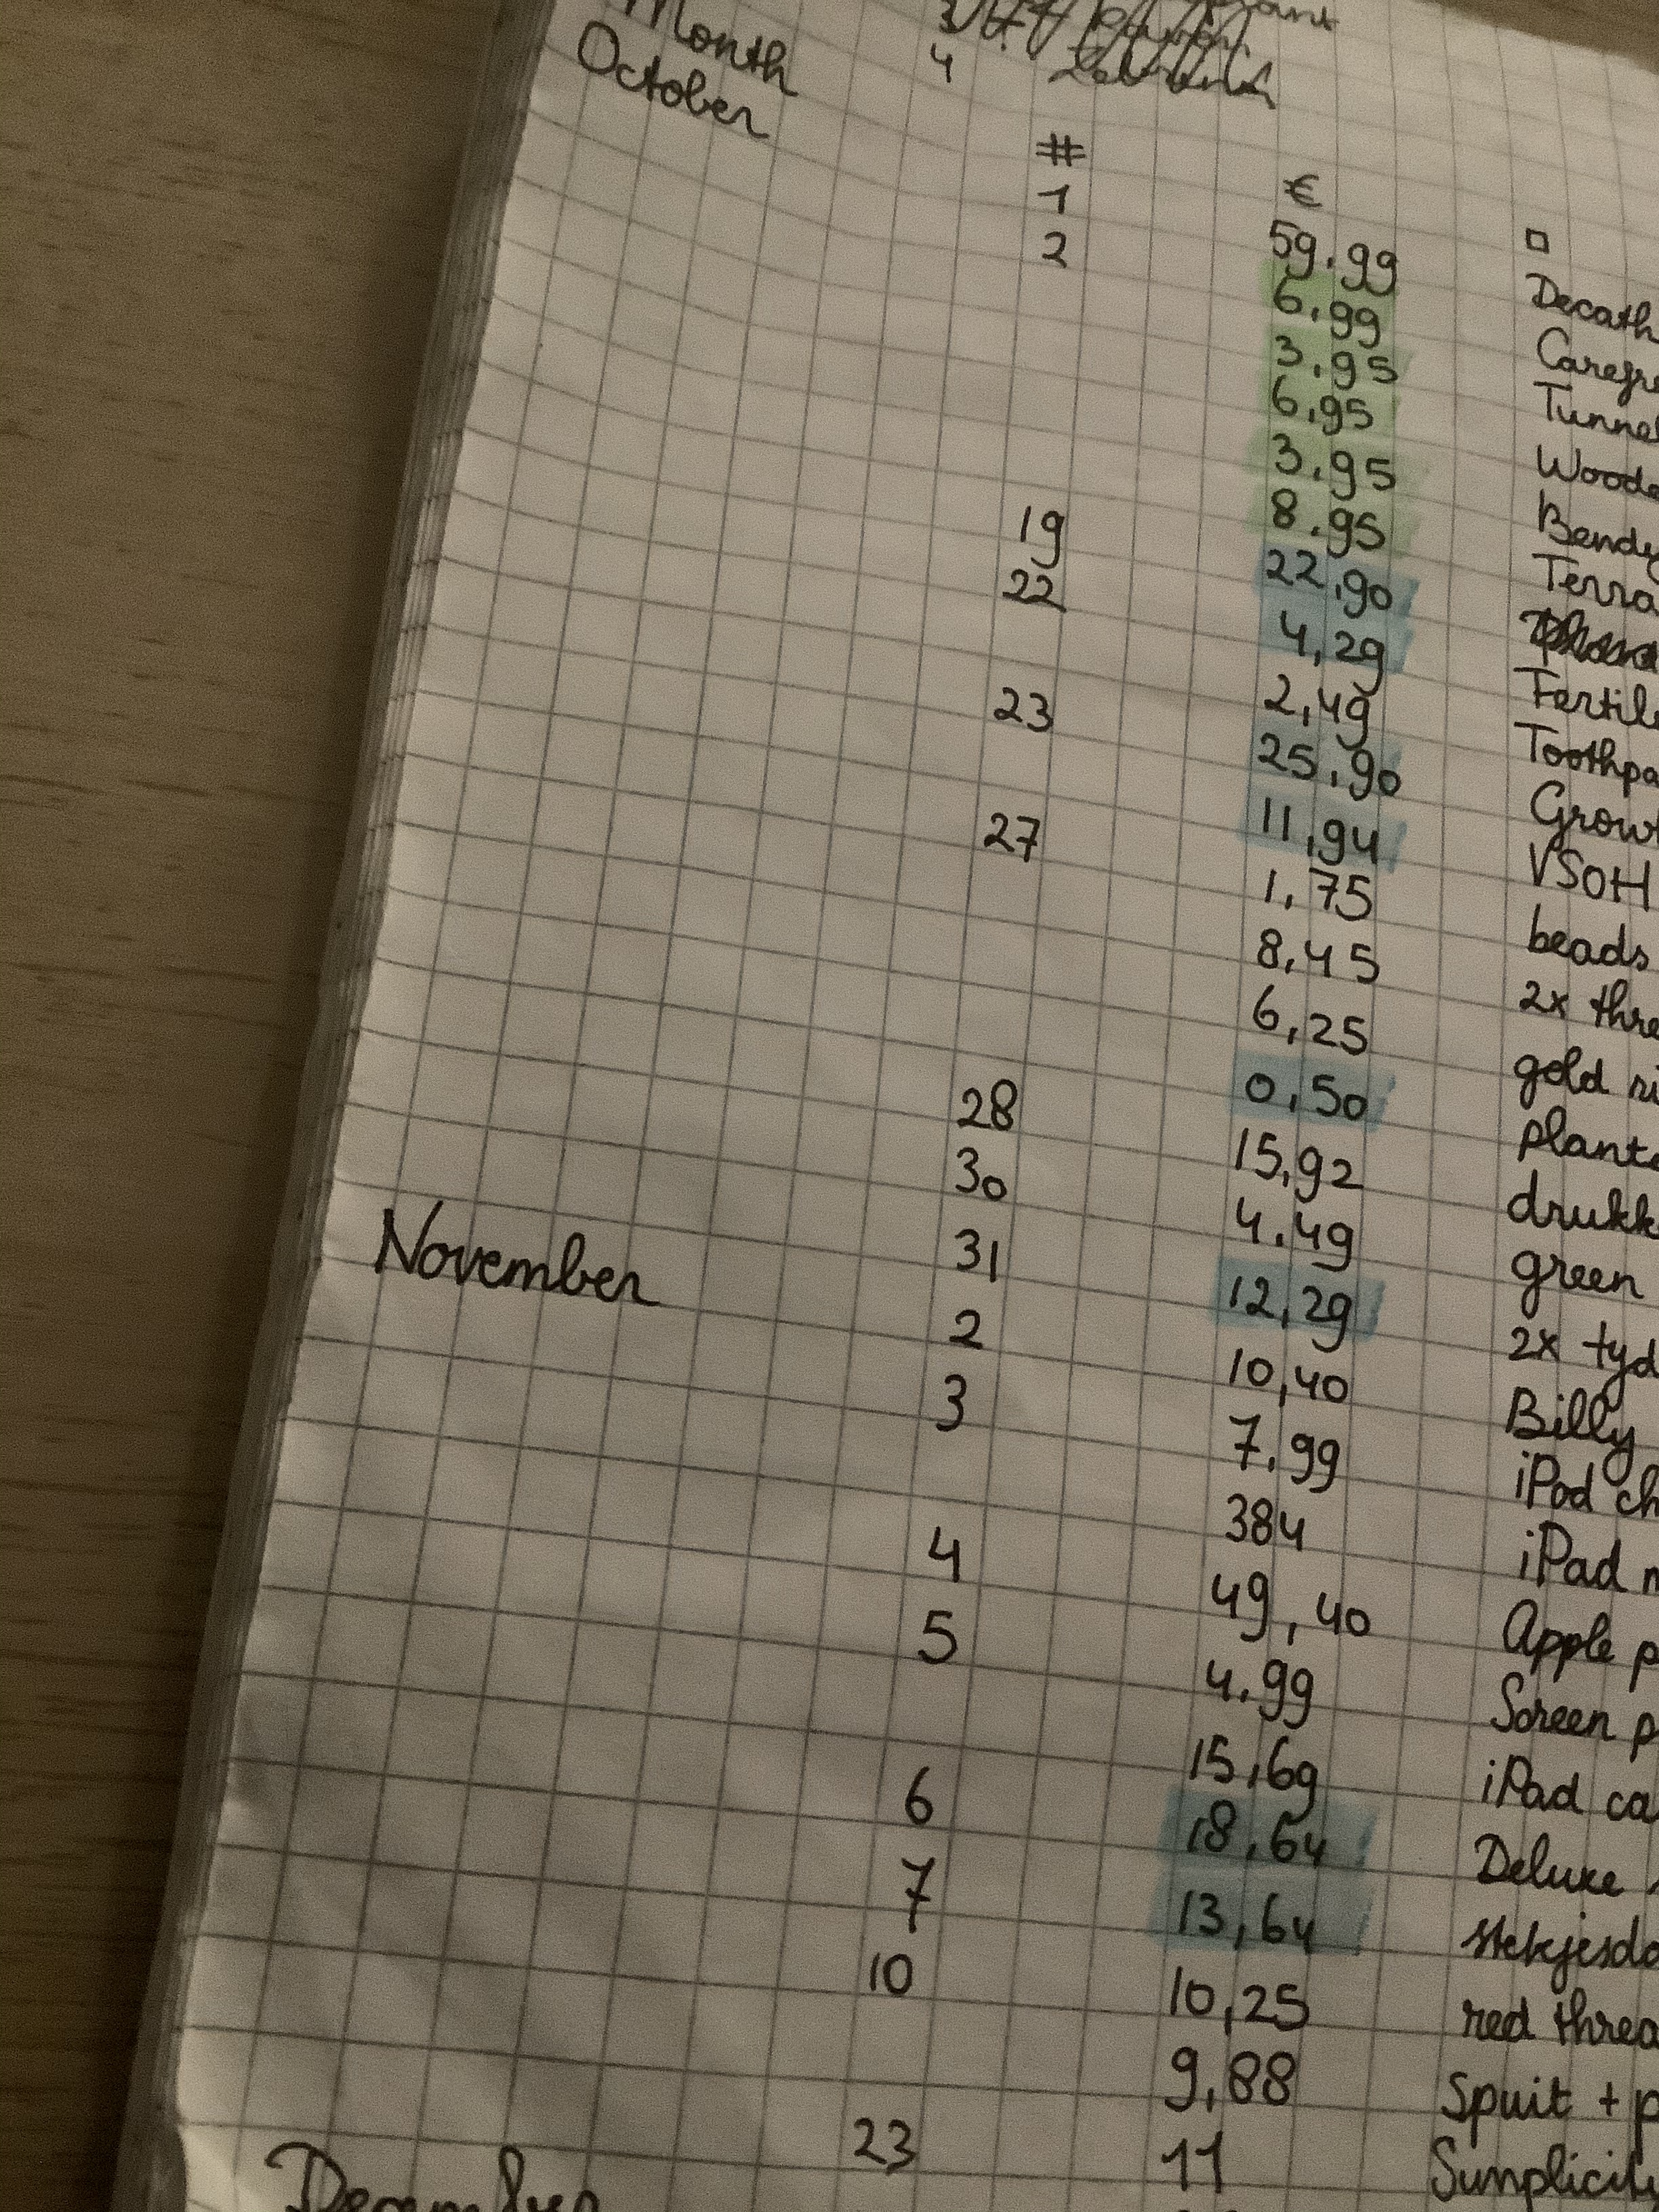 4
Month # € □
October 1 59.99 Decath
2 6,99 Carefre
3,95 Tunnel
6,95 Woode
3,95 Bendy
8,95 Terra
19 22,90
22 4,29 Fertil
2,49 Toothpa
23 25,90 Growt
11,94 VSOH
27 1,75 beads
8,45 2x thre
6,25 gold ri
0,50 plant
28 15,92 drukk
30 4.49 green
31 12,29 2x tyd
November 2 10,40 Billy
3 7,99 iPod ch
384 iPad
4 49,40 Apple p
5 4,99 Screen p
15,69 iPad ca
6 18,64 Deluxe
7 13,64 stekjesdo
10 10,25 red threa
9,88 Spuit + p
23 11 Sumplicity
December